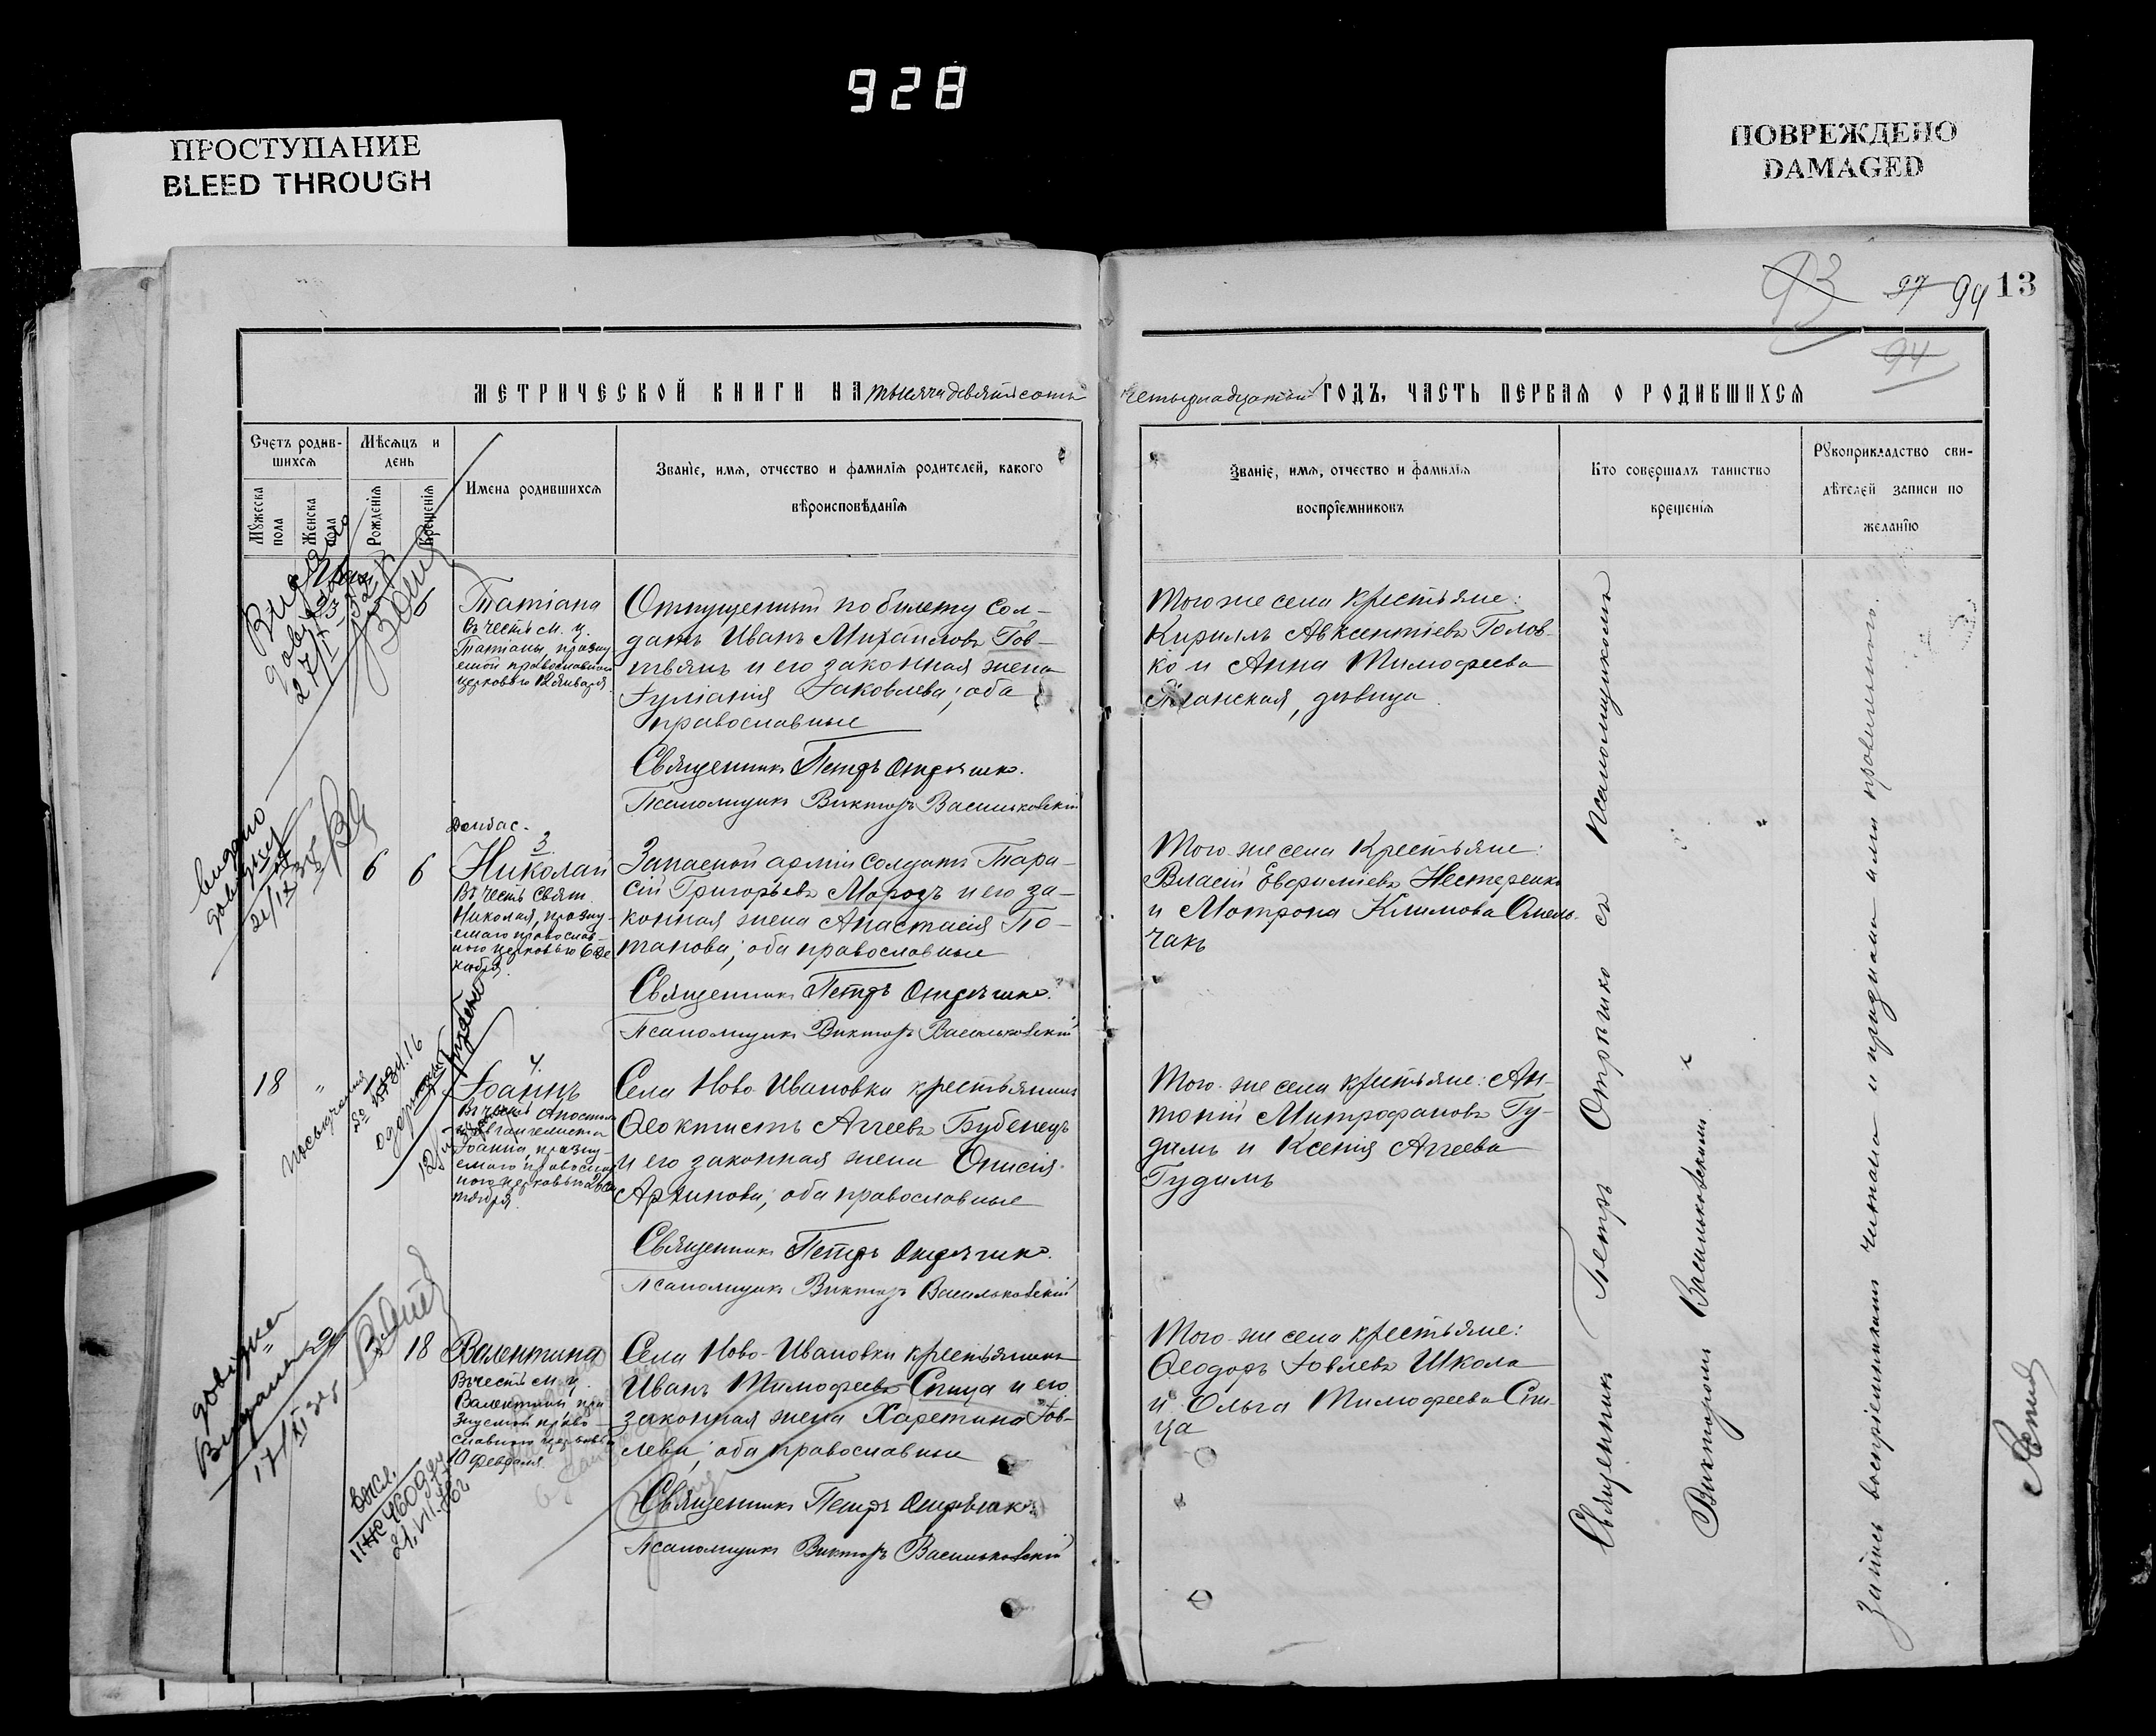 928
ПРОСТУПАНИЕ
BLEED THROUGH
ПОВРЕЖДЕНО
DAMAGED
93 97 94 13
94
МЕТРИЧЕСКОЙ КНИГИ НА тысяча девятьсотъ четырнадцатый ГОДЪ, ЧАСТЬ ПЕРВАЯ О РОДИВШИХСЯ
Счетъ родив-
шихся
Мужеска пола
Женска пола
Мѣсяцъ и
день
Рожденія
Крещенія
Имена родившихся
Званіе, имя, отчество и фамилія родителей, какого
вѣроисповѣданія
Званіе, имя, отчество и фамилія
воспріемниковъ
Кто совершалъ таинство
крещенія
Рукоприкладство сви-
дѣтелей записи по
желанію
6
Татіана
Въ честь м. ц.
Татіаны, празну
емой православной
церковью 12 января
Отпущенный по билету сол-
датъ Иванъ Михаиловъ Гов-
твянъ и его законная жена
Іуліанія Іаковлева; оба
православные
Священникъ Петръ Отрѣшко.
Псаломщикъ Виктор Васильковскій
Того же села крестьяне:
Кириллъ Авксентіевъ Голов-
ко и Анна Тимофеева
дѣвица
Донбас.
3
6 6
Николай
Въ честь Свят.
Николая, празну-
емаго православ-
ною церковью 6 де
кабря.
Запасной арміи солдатъ Тара-
сій Григорьевъ Морозъ и его за-
конная жена Анастасія По-
тапова; оба православные
Священникъ Петръ Отрѣшко.
Псаломщикъ Викторъ Васильковскій
Того же села Крестьяне:
Власій Евфиміевъ Нестеренко
и Матрона Климова Омель-
чакъ
18 "
4
Іоаннъ
Въ честь Апостола
и Евангелиста
Іоанна, празну-
емаго православ
ною церковью 26 сен
тября.
Села Ново-Ивановки крестьянинъ
Ѳеоктистъ Аггеевъ Бубенецъ
и его законная жена Онисія
Архипова; оба православные
Священникъ Петръ Отрѣшко.
Псаломщикъ Викторъ Васильковскій
Того-же села крестьяне: Ан-
тоній Митрофановъ Гу-
димъ и Ксенія Аггеева
Гудимъ
" 2
18
Валентина
Въ честь м. ц.
Валентины пра
знуемой право-
славною церковью
10 февраля.
Села Ново-Ивановки крестьянинъ
Иванъ Тимофеевъ Спица и его
законная жена Харитина Іов-
лева; оба православные
Священникъ Петръ Отрѣшко
Псаломщикъ Викторъ Васильковскій
Того-же села крестьяне:
Ѳеодоръ Іовлевъ Школа
и Ольга Тимофеева Спи-
ца
Священникъ Петръ Отрѣшко съ Псаломщикомъ
Викторомъ Васильковскимъ
Запись воспріемниками читана и признана ими правильною.